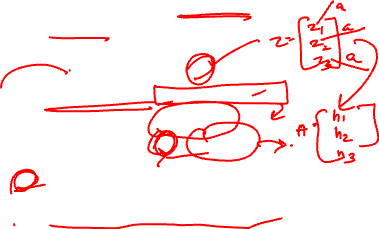 a
z = [z₁
z₂ a
z₃] a
A = [h₁
h₂
h₃]